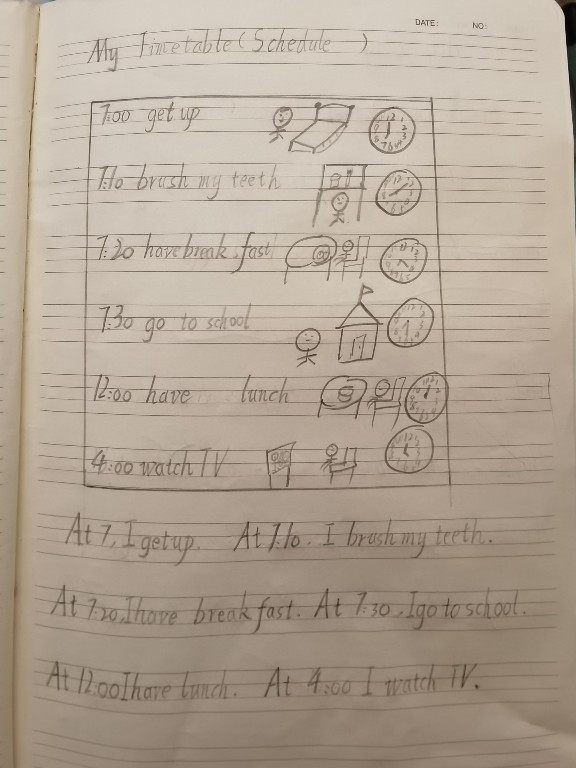 DATE: NO:
My Timetable (Schedule )
7:00 get up
7:10 brush my teeth
7:20 have breakfast
7:30 go to school
12:00 have lunch
4:00 watch TV
At 7, I get up. At 7:10. I brush my teeth.
At 7:20, I have breakfast. At 7:30, I go to school.
At 12:00 I have lunch. At 4:00 I watch TV.